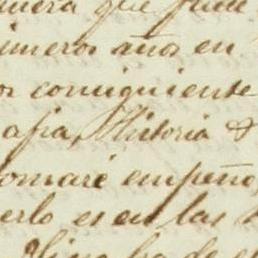 que
imeros años en
consiguiente
afia, Historia &
omaré empeño,
erlo es en las